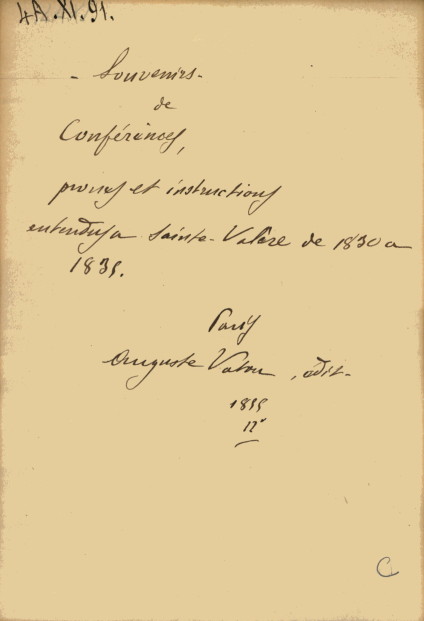 4A.XI.91.
- Souvenirs -
de
Conférences,
prones et instructions
entendus a Sainte-Valère de 1830 a
1835.
Paris
Auguste Vaton, edit-
1855
12°
C